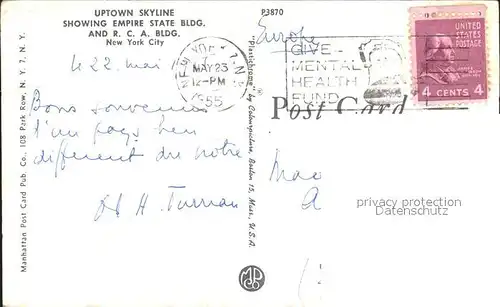 UPTOWN SKYLINE
SHOWING EMPIRE STATE BLDG.
AND R. C. A. BLDG.
New York City
P3870
Europe
le 22 mai
Bons souvenirs
d'un pays bien
différent du nôtre
H.
NEW YORK, N.Y.
MAY 23
12-PM
1955
GIVE
MENTAL
HEALTH
FUND
UNITED
STATES
POSTAGE
4 CENTS 4
Post Card
"Plastichrome" by Colourpicture, Boston 15, Mass., U.S.A.
Manhattan Post Card Pub. Co., 108 Park Row, N. Y. 7, N. Y.
privacy protection
Datenschutz